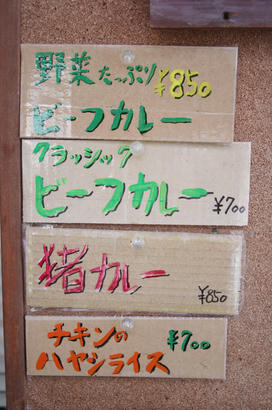 野菜たっぷり ¥850
ビーフカレー
クラッシック
ビーフカレー ¥700
猪カレー
¥850
チキンの ¥700
ハヤシライス